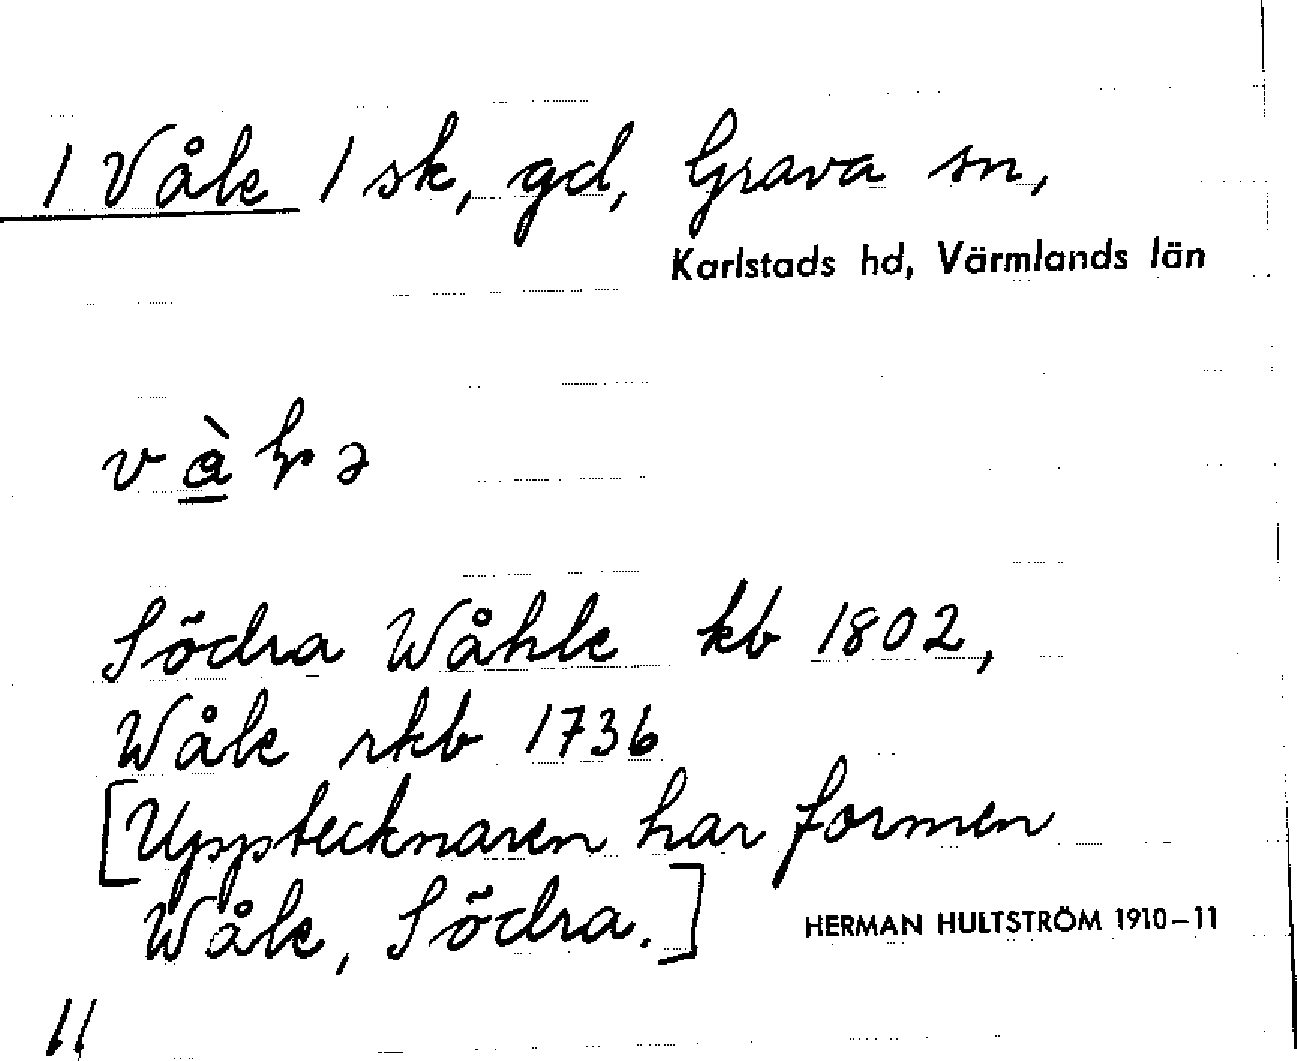 / Våle / sk, gd, Grava sn,
Karlstads hd, Värmlands län
Södra Wåhle kb 1802,
Wåle rkb 1736
[Upptecknaren har formen
Wåle, Södra.]
HERMAN HULTSTRÖM 1910-11